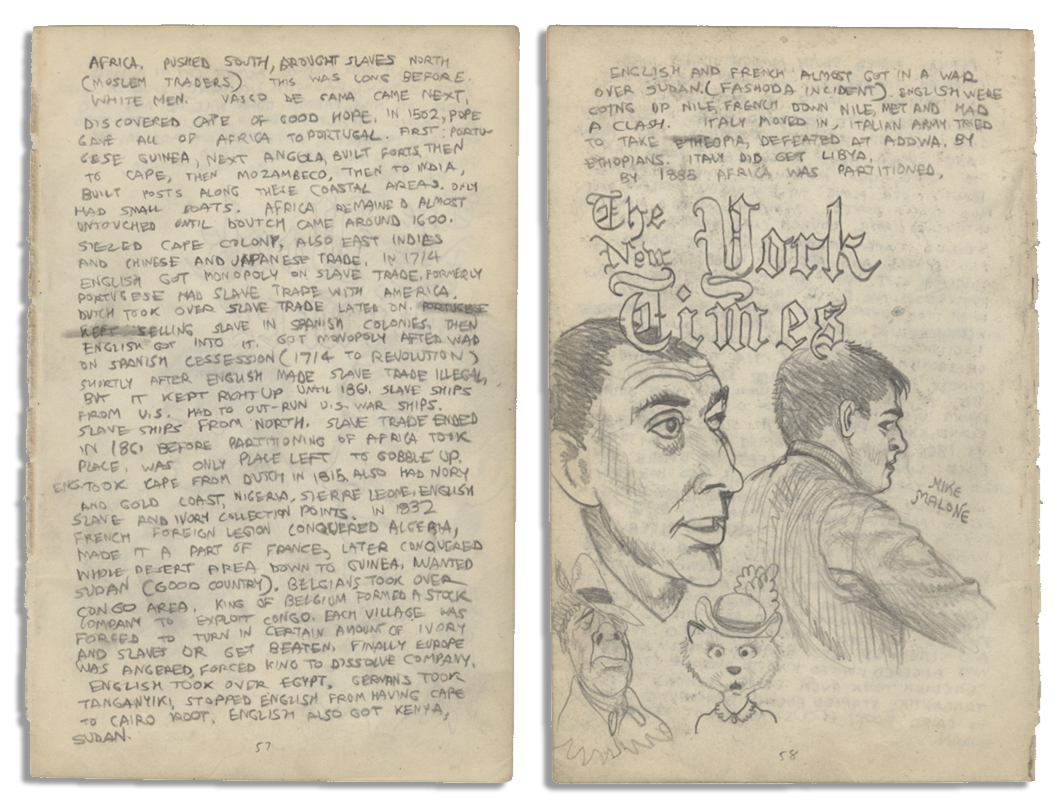 AFRICA. PUSHED SOUTH, BROUGHT SLAVES NORTH
(MOSLEM TRADERS) THIS WAS LONG BEFORE.
WHITE MEN. VASCO DE GAMA CAME NEXT,
DISCOVERED CAPE OF GOOD HOPE. IN 1502, POPE
GAVE ALL OF AFRICA TO PORTUGAL. FIRST: PORTU-
GESE GUINEA, NEXT ANGOLA, BUILT FORTS, THEN
TO CAPE, THEN MOZAMBECO, THEN TO INDIA,
BUILT POSTS ALONG THESE COASTAL AREAS. ONLY
HAD SMALL BOATS. AFRICA REMAINED ALMOST
UNTOUCHED UNTIL DOUTCH CAME AROUND 1600.
SIEZED CAPE COLONY, ALSO EAST INDIES
AND CHINESE AND JAPANESE TRADE. IN 1714
ENGLISH GOT MONOPOLY ON SLAVE TRADE, FORMERLY
PORTUGESE HAD SLAVE TRADE WITH AMERICA.
DUTCH TOOK OVER SLAVE TRADE LATER ON. PORTUGESE
KEPT SELLING SLAVE IN SPANISH COLONIES, THEN
ENGLISH GOT INTO IT. GOT MONOPOLY AFTER WAR
ON SPANISH CESSESSION (1714 TO REVOLUTION)
SHORTLY AFTER ENGLISH MADE SLAVE TRADE ILLEGAL,
BUT IT KEPT RIGHT UP UNTIL 1861. SLAVE SHIPS
FROM U.S. HAD TO OUT-RUN U.S. WAR SHIPS.
SLAVE SHIPS FROM NORTH. SLAVE TRADE ENDED
IN 1861 BEFORE PARTITIONING OF AFRICA TOOK
PLACE, WAS ONLY PLACE LEFT TO GOBBLE UP.
ENG. TOOK CAPE FROM DUTCH IN 1815. ALSO HAD IVORY
AND GOLD COAST, NIGERIA, SIERRE LEONE, ENGLISH
SLAVE AND IVORY COLLECTION POINTS. IN 1832
FRENCH FOREIGN LEGION CONQUERED ALGERIA,
MADE IT A PART OF FRANCE, LATER CONQUERED
WHOLE DESERT AREA DOWN TO GUINEA, WANTED
SUDAN (GOOD COUNTRY). BELGIANS TOOK OVER
CONGO AREA. KING OF BELGIUM FORMED A STOCK
COMPANY TO EXPLOIT CONGO. EACH VILLAGE WAS
FORCED TO TURN IN CERTAIN AMOUNT OF IVORY
AND SLAVES OR GET BEATEN. FINALLY EUROPE
WAS ANGERED, FORCED KING TO DISSOLVE COMPANY.
ENGLISH TOOK OVER EGYPT, GERMANS TOOK
TANGANYIKI, STOPPED ENGLISH FROM HAVING CAPE
TO CAIRO ROOT, ENGLISH ALSO GOT KENYA,
SUDAN.
57
ENGLISH AND FRENCH ALMOST GOT IN A WAR
OVER SUDAN. (FASHODA INCIDENT) ENGLISH WERE
GOING UP NILE, FRENCH DOWN NILE, MET AND HAD
A CLASH. ITALY MOVED IN, ITALIAN ARMY TRIED
TO TAKE ETHEOPIA, DEFEATED AT ADDWA. BY
ETHOPIANS. ITALY DID GET LIBYA.
BY 1885 AFRICA WAS PARTITIONED,
The
New York
Times
MIKE
MALONE
58